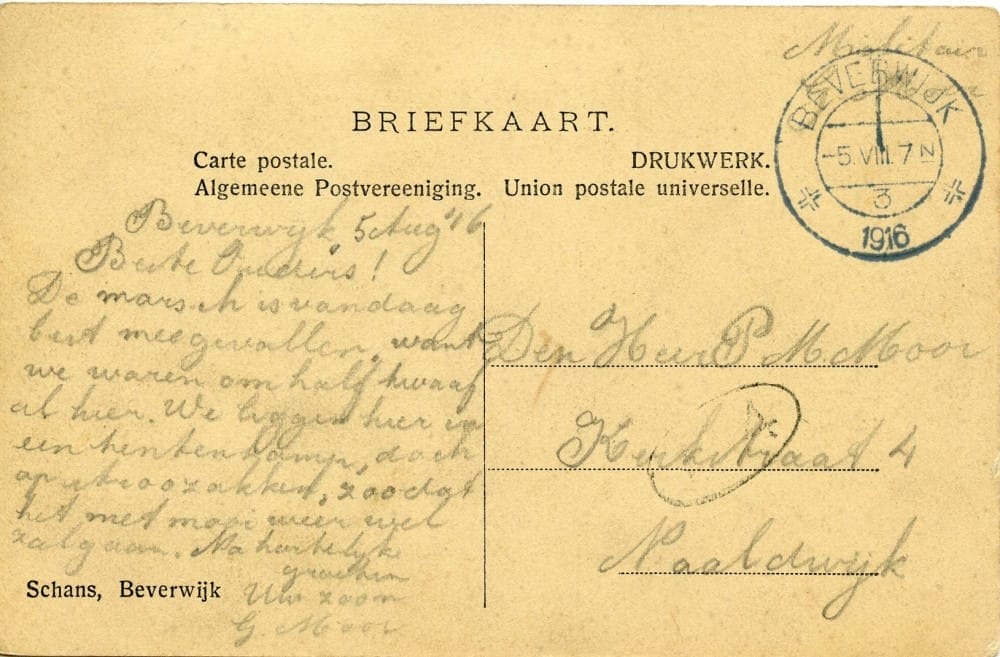 Militair
BEVERWIJK
-5.VIII.7 N
3
1916
BRIEFKAART.
Carte postale. DRUKWERK.
Algemeene Postvereeniging. Union postale universelle.
Beverwijk, 5 Aug '16
Beste Ouders!
De marsch is vandaag
best meegevallen, want
we waren om half twaalf
al hier. We liggen hier in
een tentenkamp, doch
op stroozakken, zoodat
het met mooi weer wel
zal gaan. Na hartelijke
groeten
Uw zoon
G. Moor
Den Heer P. M. Moor
Kerkstraat 4
Naaldwijk
Schans, Beverwijk